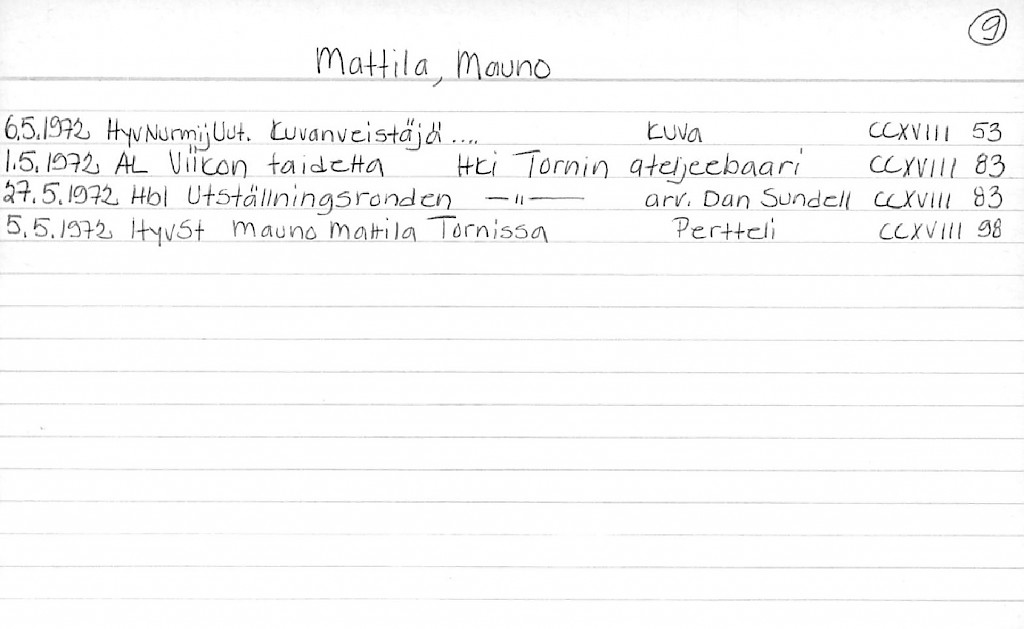 9
Mattila, Mauno
6.5.1972 HyvNurmijUut. Kuvanveistäjä .... kuva CCXVIII 53
1.5.1972 AL Viikon taidetta Hki Tornin ateljeebaari CCXVIII 83
27.5.1972 Hbl Utställningsronden —"— arv. Dan Sundell CCXVIII 83
5.5.1972 HyvSt Mauno Mattila Tornissa Pertteli CCXVIII 98